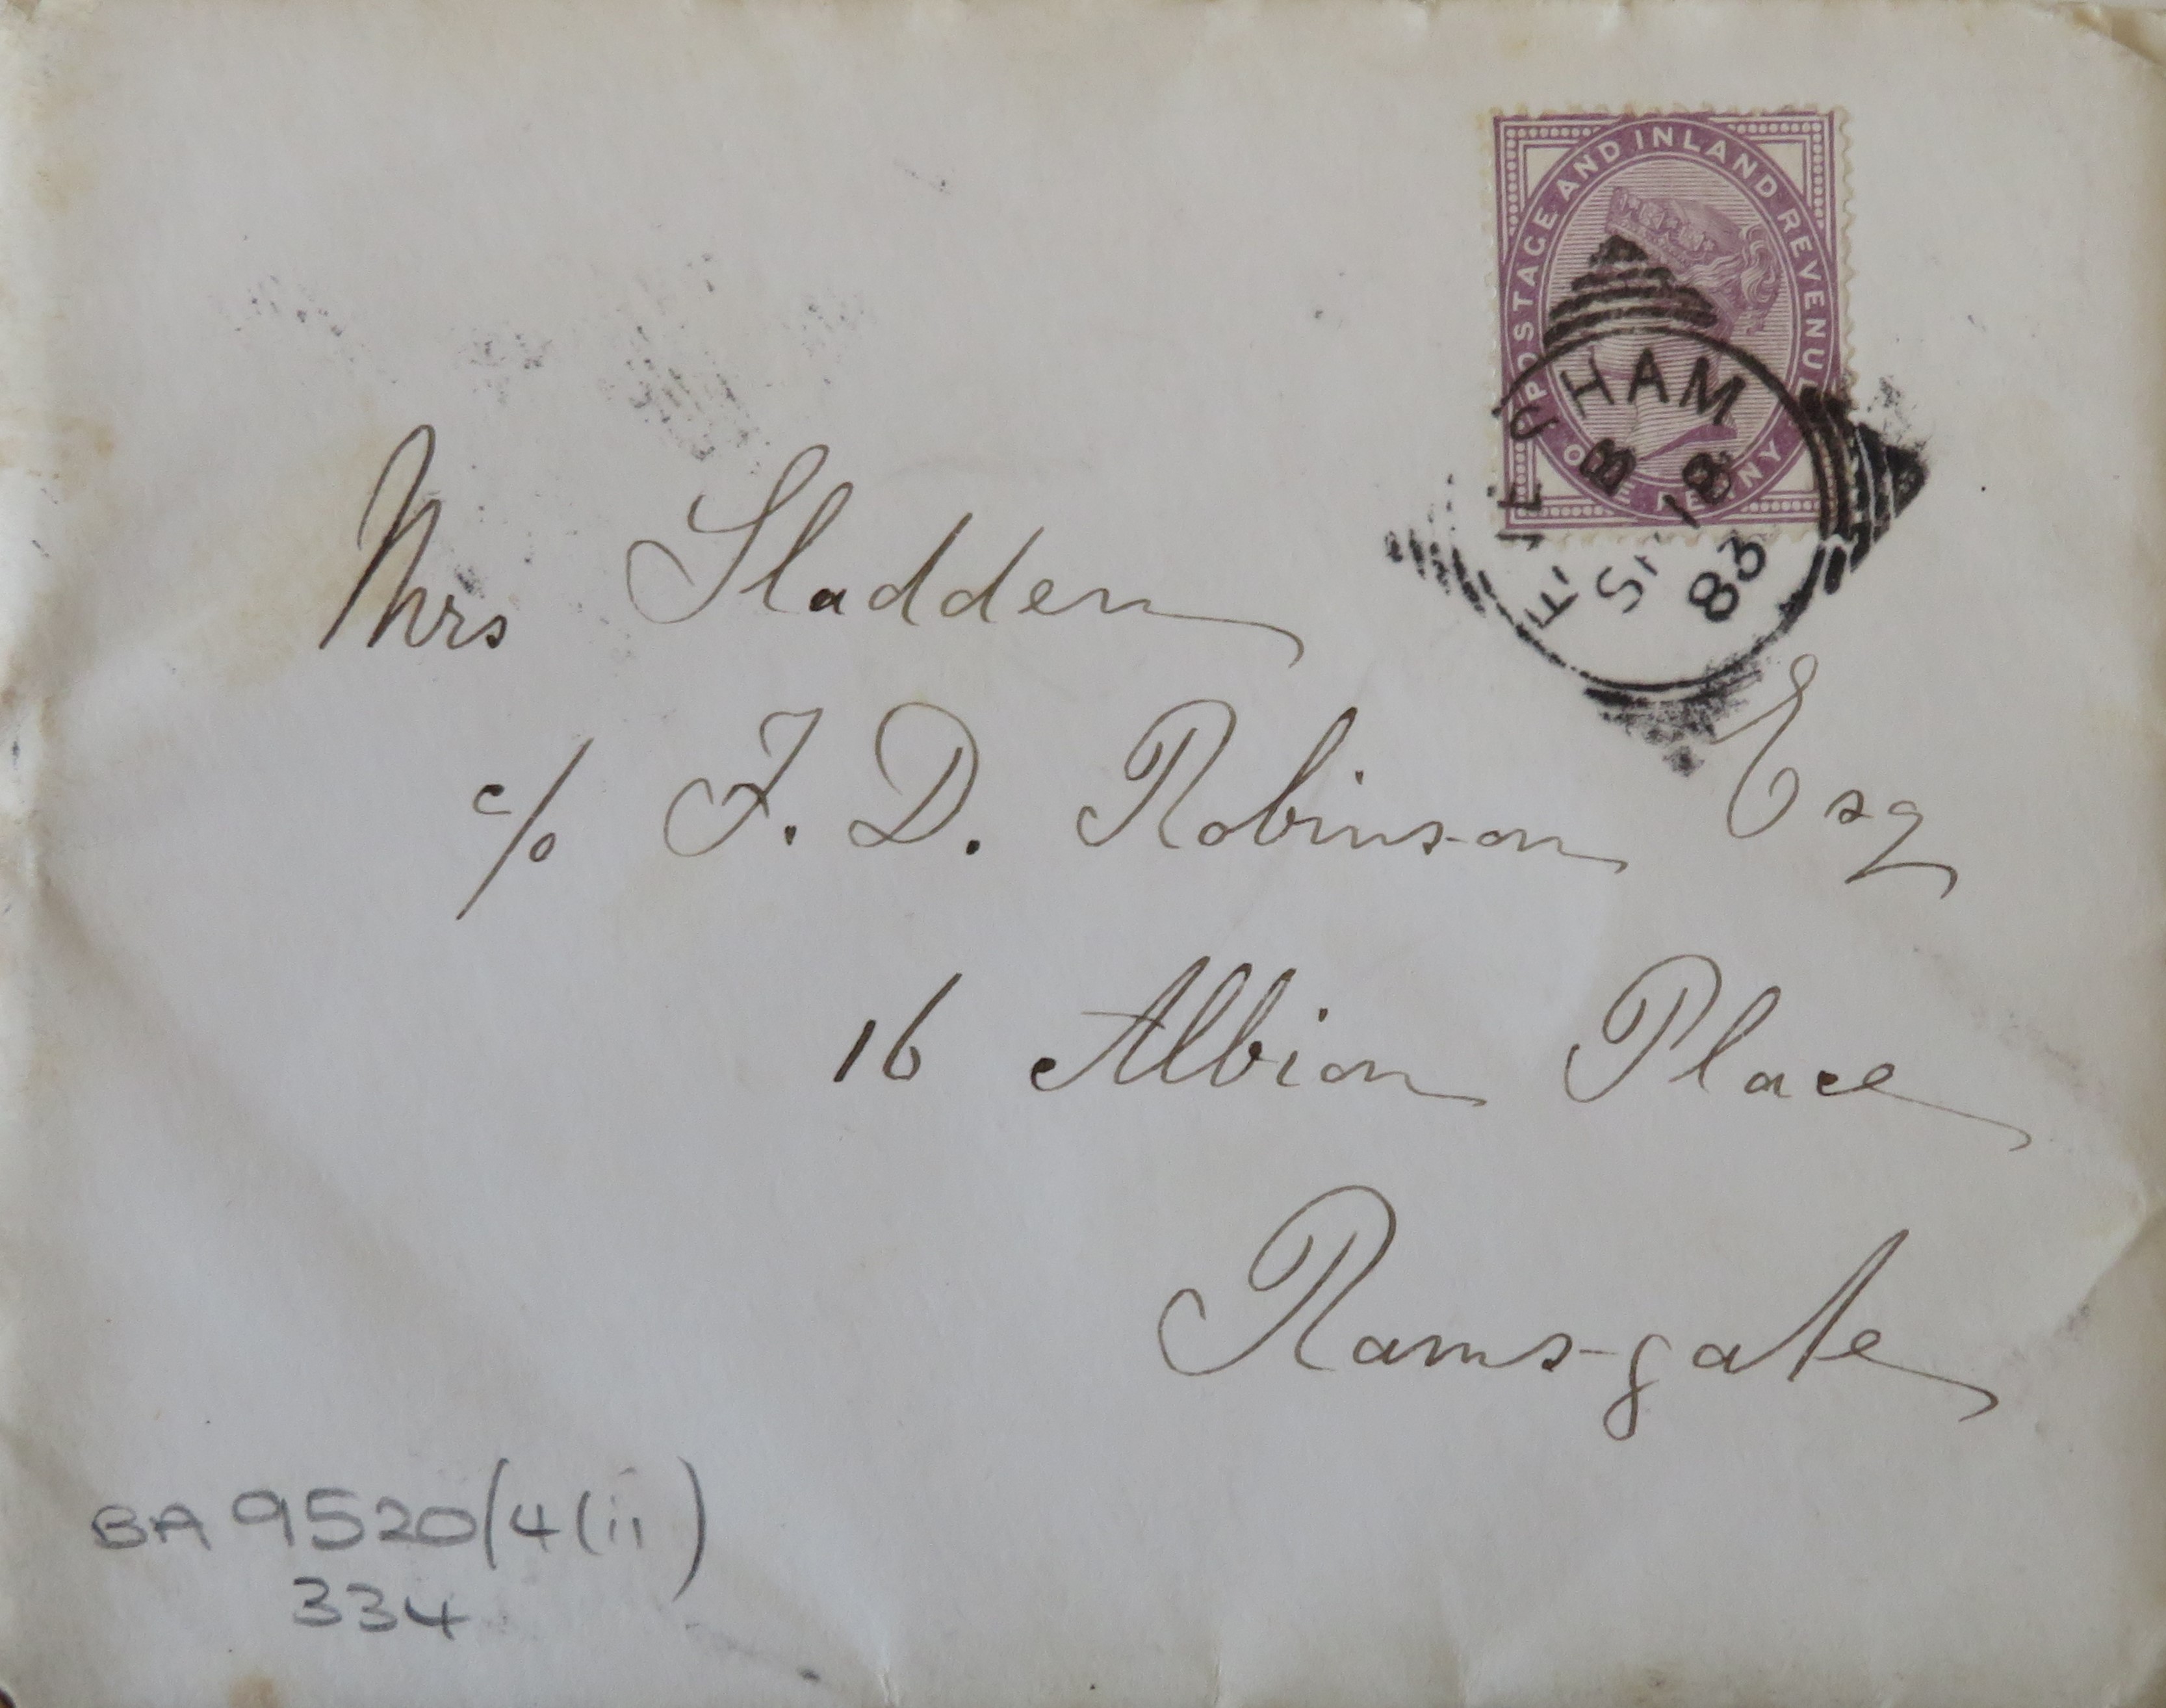 POSTAGE AND INLAND REVENUE
ONE PENNY
HAM
B
SP 18
83
Mrs Sladden
c/o F. D. Robinson Esq
16 Albion Place
Ramsgate
BA 9520/4(ii)
334